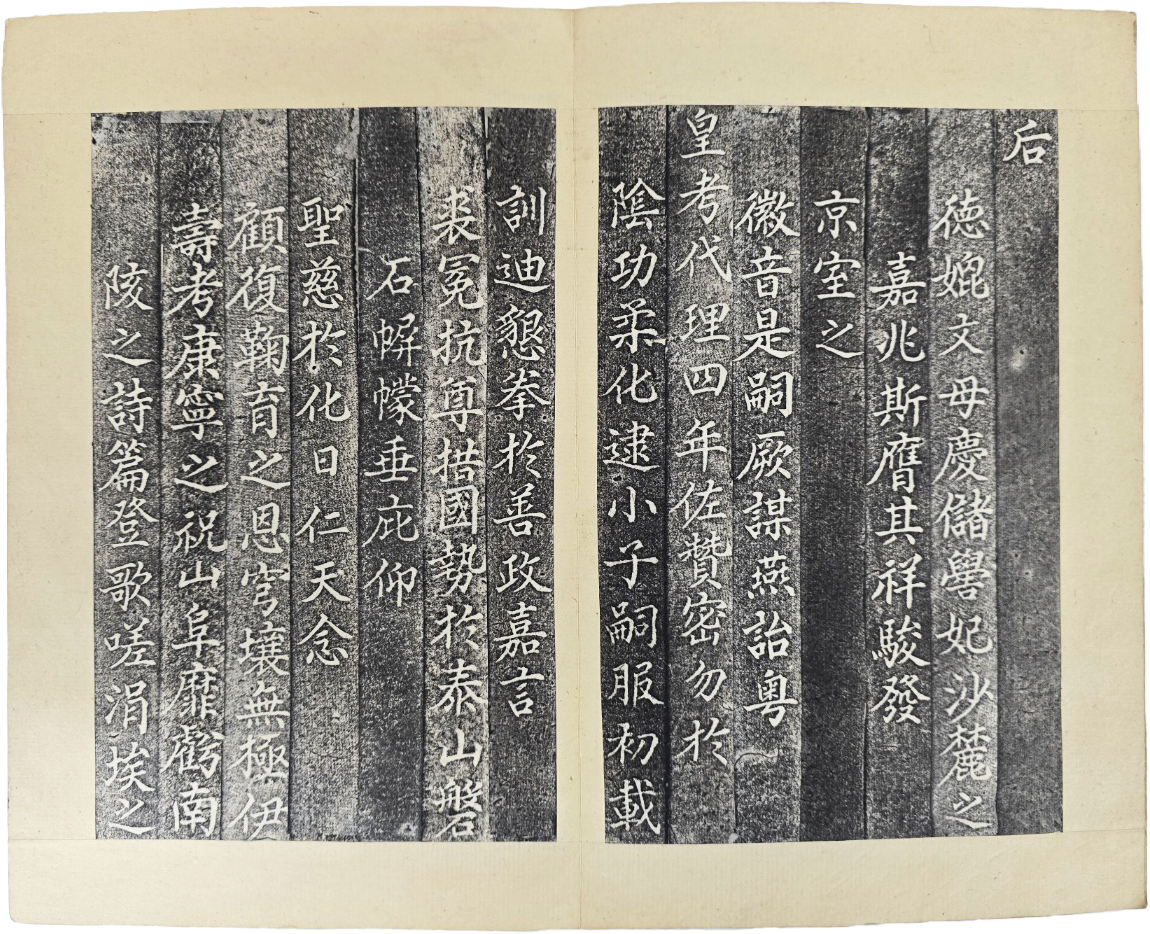 后
德媲文母慶儲嚳妃沙麓之
嘉兆斯膺其祥駿發
京室之
徽音是嗣厥謀燕詒粤
皇考代理四年佐贊密勿於
陰功柔化逮小子嗣服初載
訓迪懇拳於善政嘉言
裘冕抗尊措國勢於泰山磐
石帲幪垂庇仰
聖慈於化日仁天念
顧復鞠育之恩穹壤無極伊
壽考康寧之祝山阜靡虧南
陔之詩篇登歌嗟涓埃之